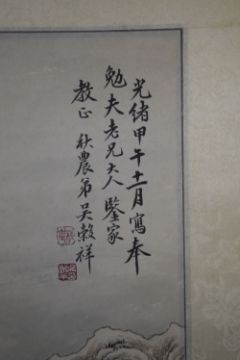 光緒甲午十一月寫奉
勉夫老兄大人鑒家
教正 秋農弟吳穀祥